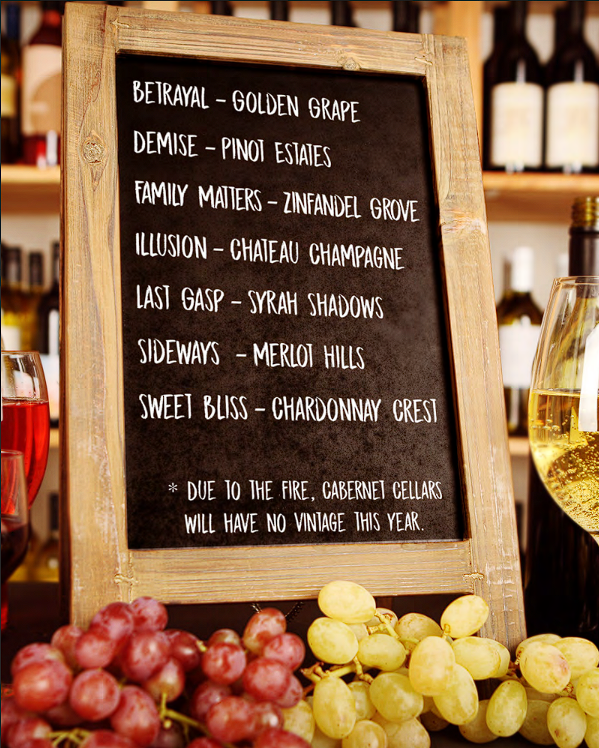 BETRAYAL – GOLDEN GRAPE
DEMISE – PINOT ESTATES
FAMILY MATTERS – ZINFANDEL GROVE
ILLUSION – CHATEAU CHAMPAGNE
LAST GASP – SYRAH SHADOWS
SIDEWAYS – MERLOT HILLS
SWEET BLISS – CHARDONNAY CREST
* DUE TO THE FIRE, CABERNET CELLARS
WILL HAVE NO VINTAGE THIS YEAR.